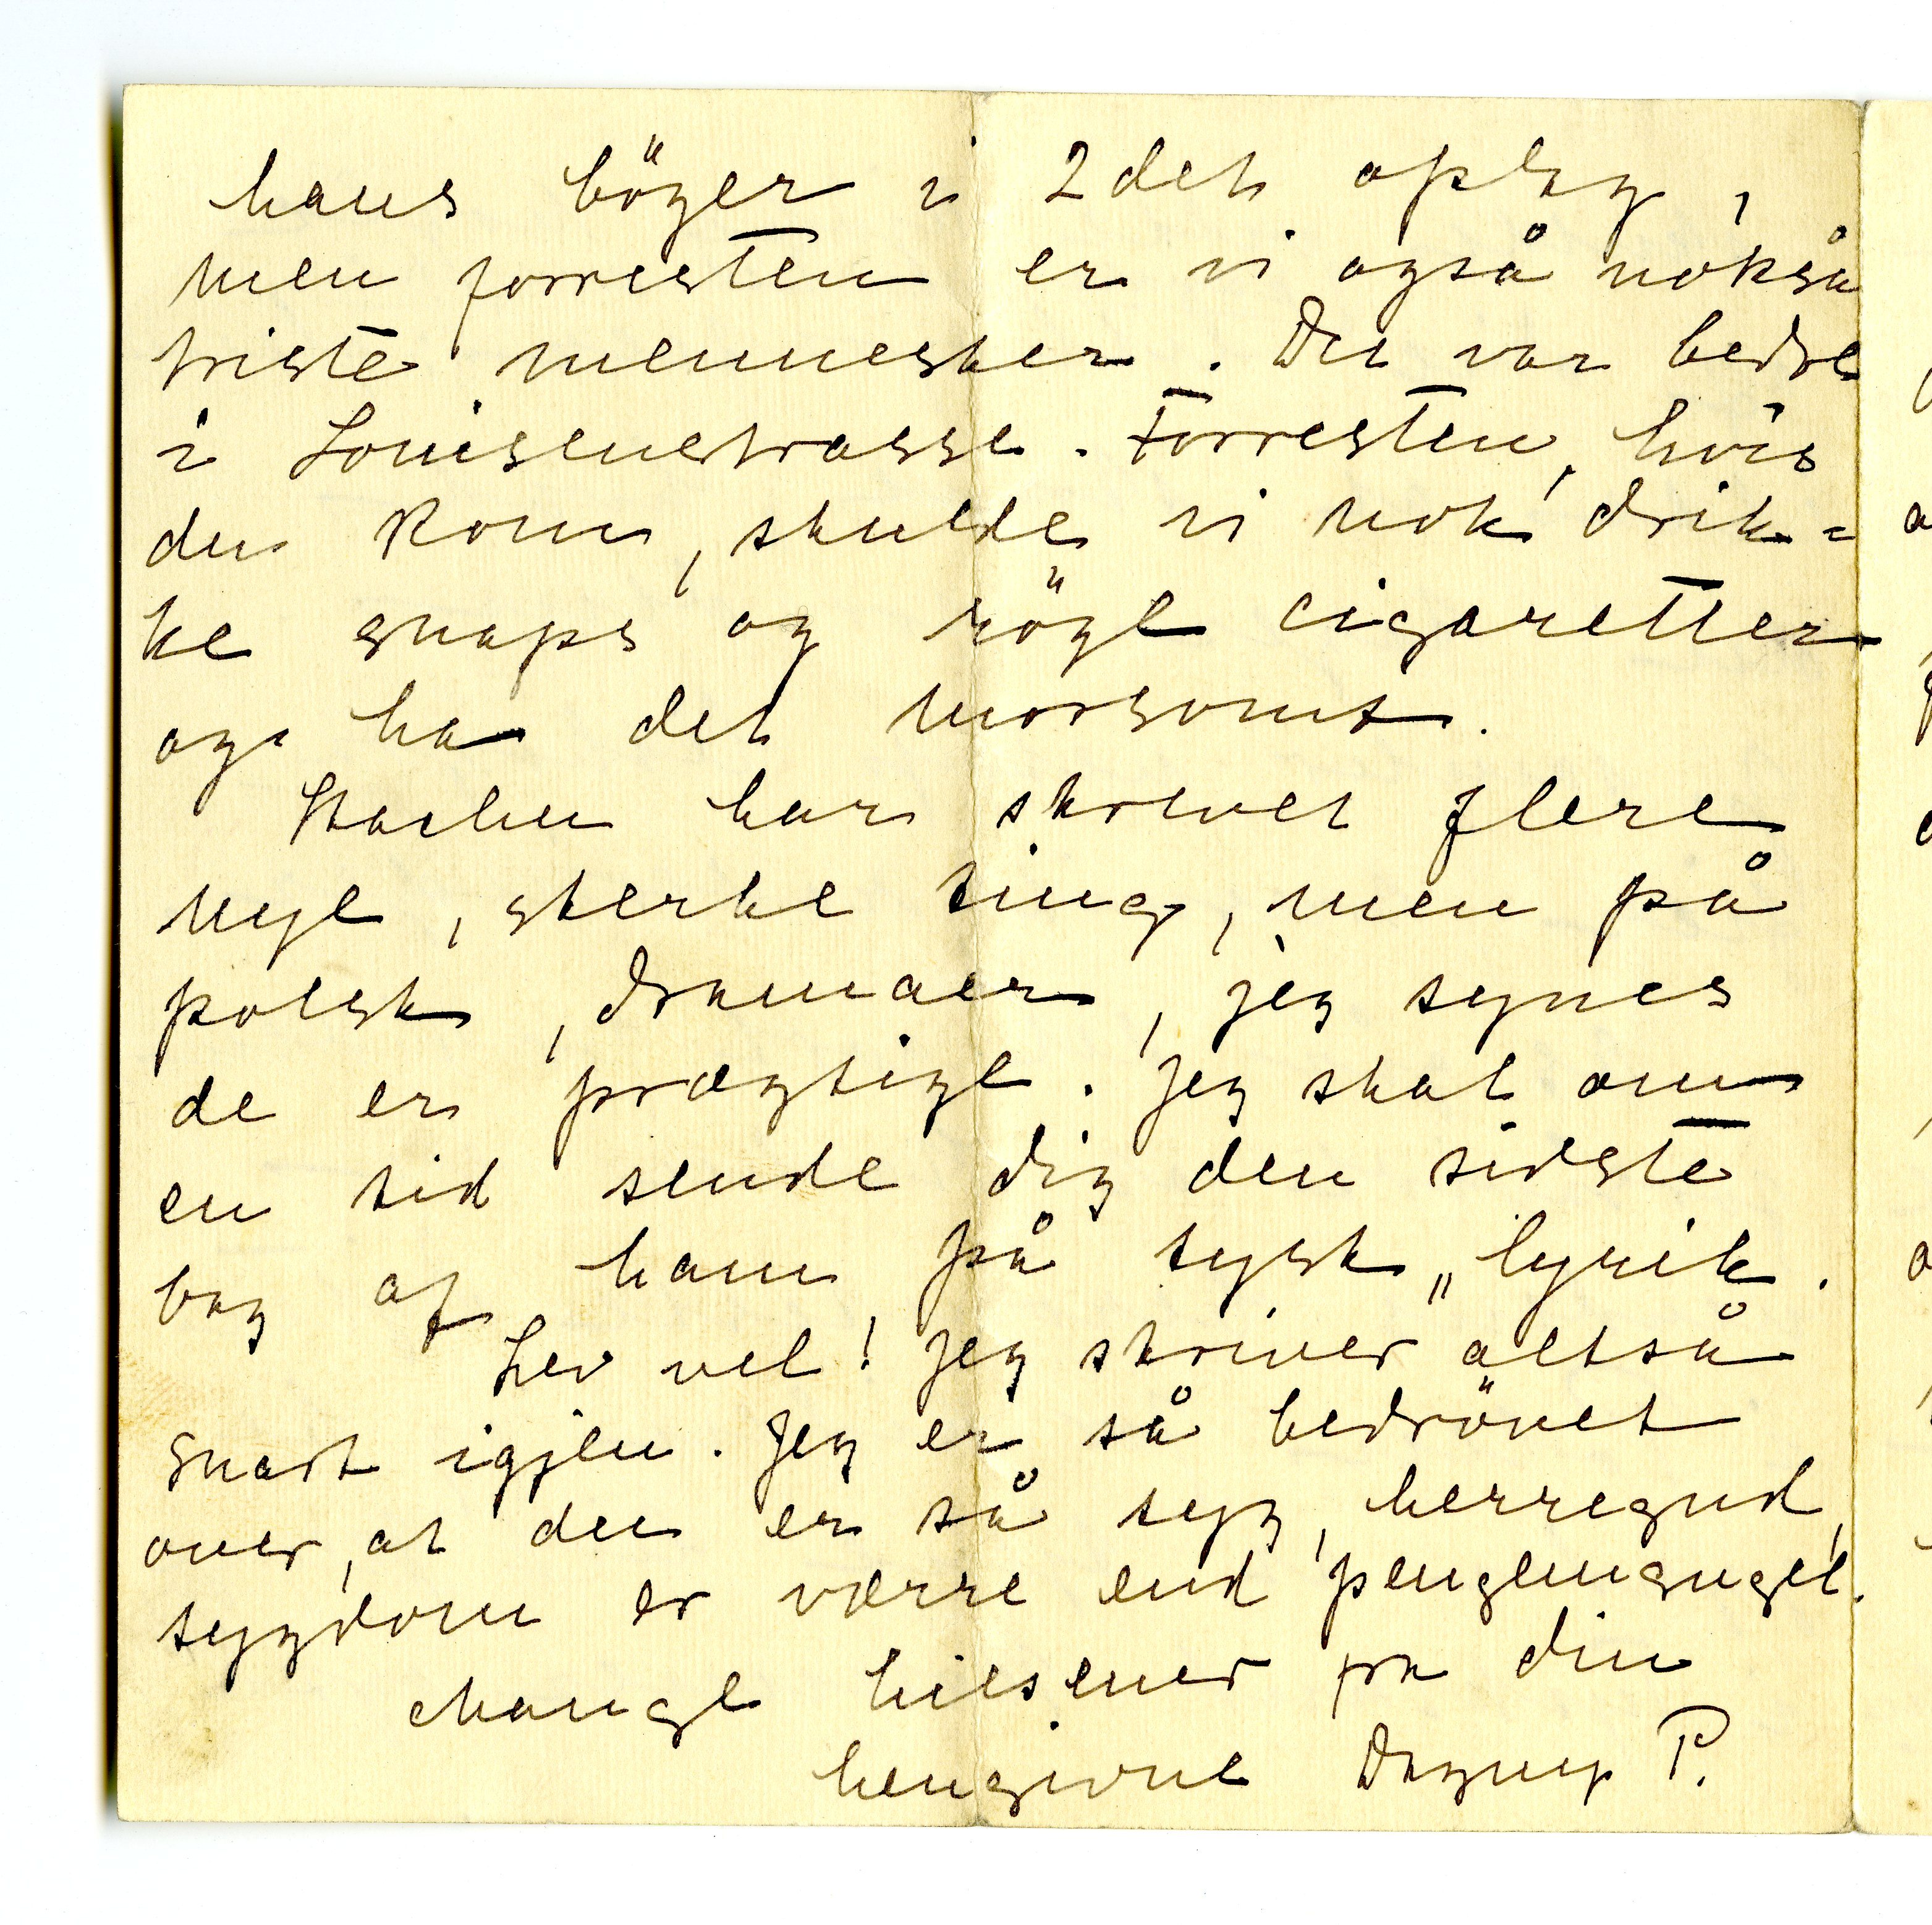 hans böger i 2det oplag,
men forresten er vi også nokså
triste mennesker. Det var bedre
i Louisenstrasse. Forresten, hvis
du kom, skulde vi nok drik=
ke snaps og röge cigaretter
og ha det morsomt.
Stachu har skrevet flere
nye, sterke ting, men på
polsk, dramaer, jeg synes
de er prægtige. Jeg skal om
en tid sende dig den sidste
bog af ham på tysk „lyrik.
Lev vel! Jeg skriver altså
snart igjen. Jeg er så bedrövet
over, at du er så syg, herregud,
sygdom er værre end pengemangel.
Mange hilsener fra din
hengivne Dagny P.